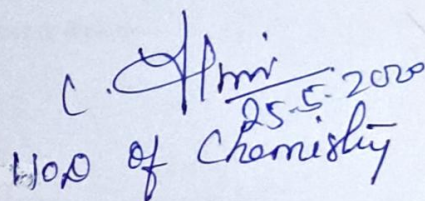 C.
25.5.2020
HOD of Chemistry